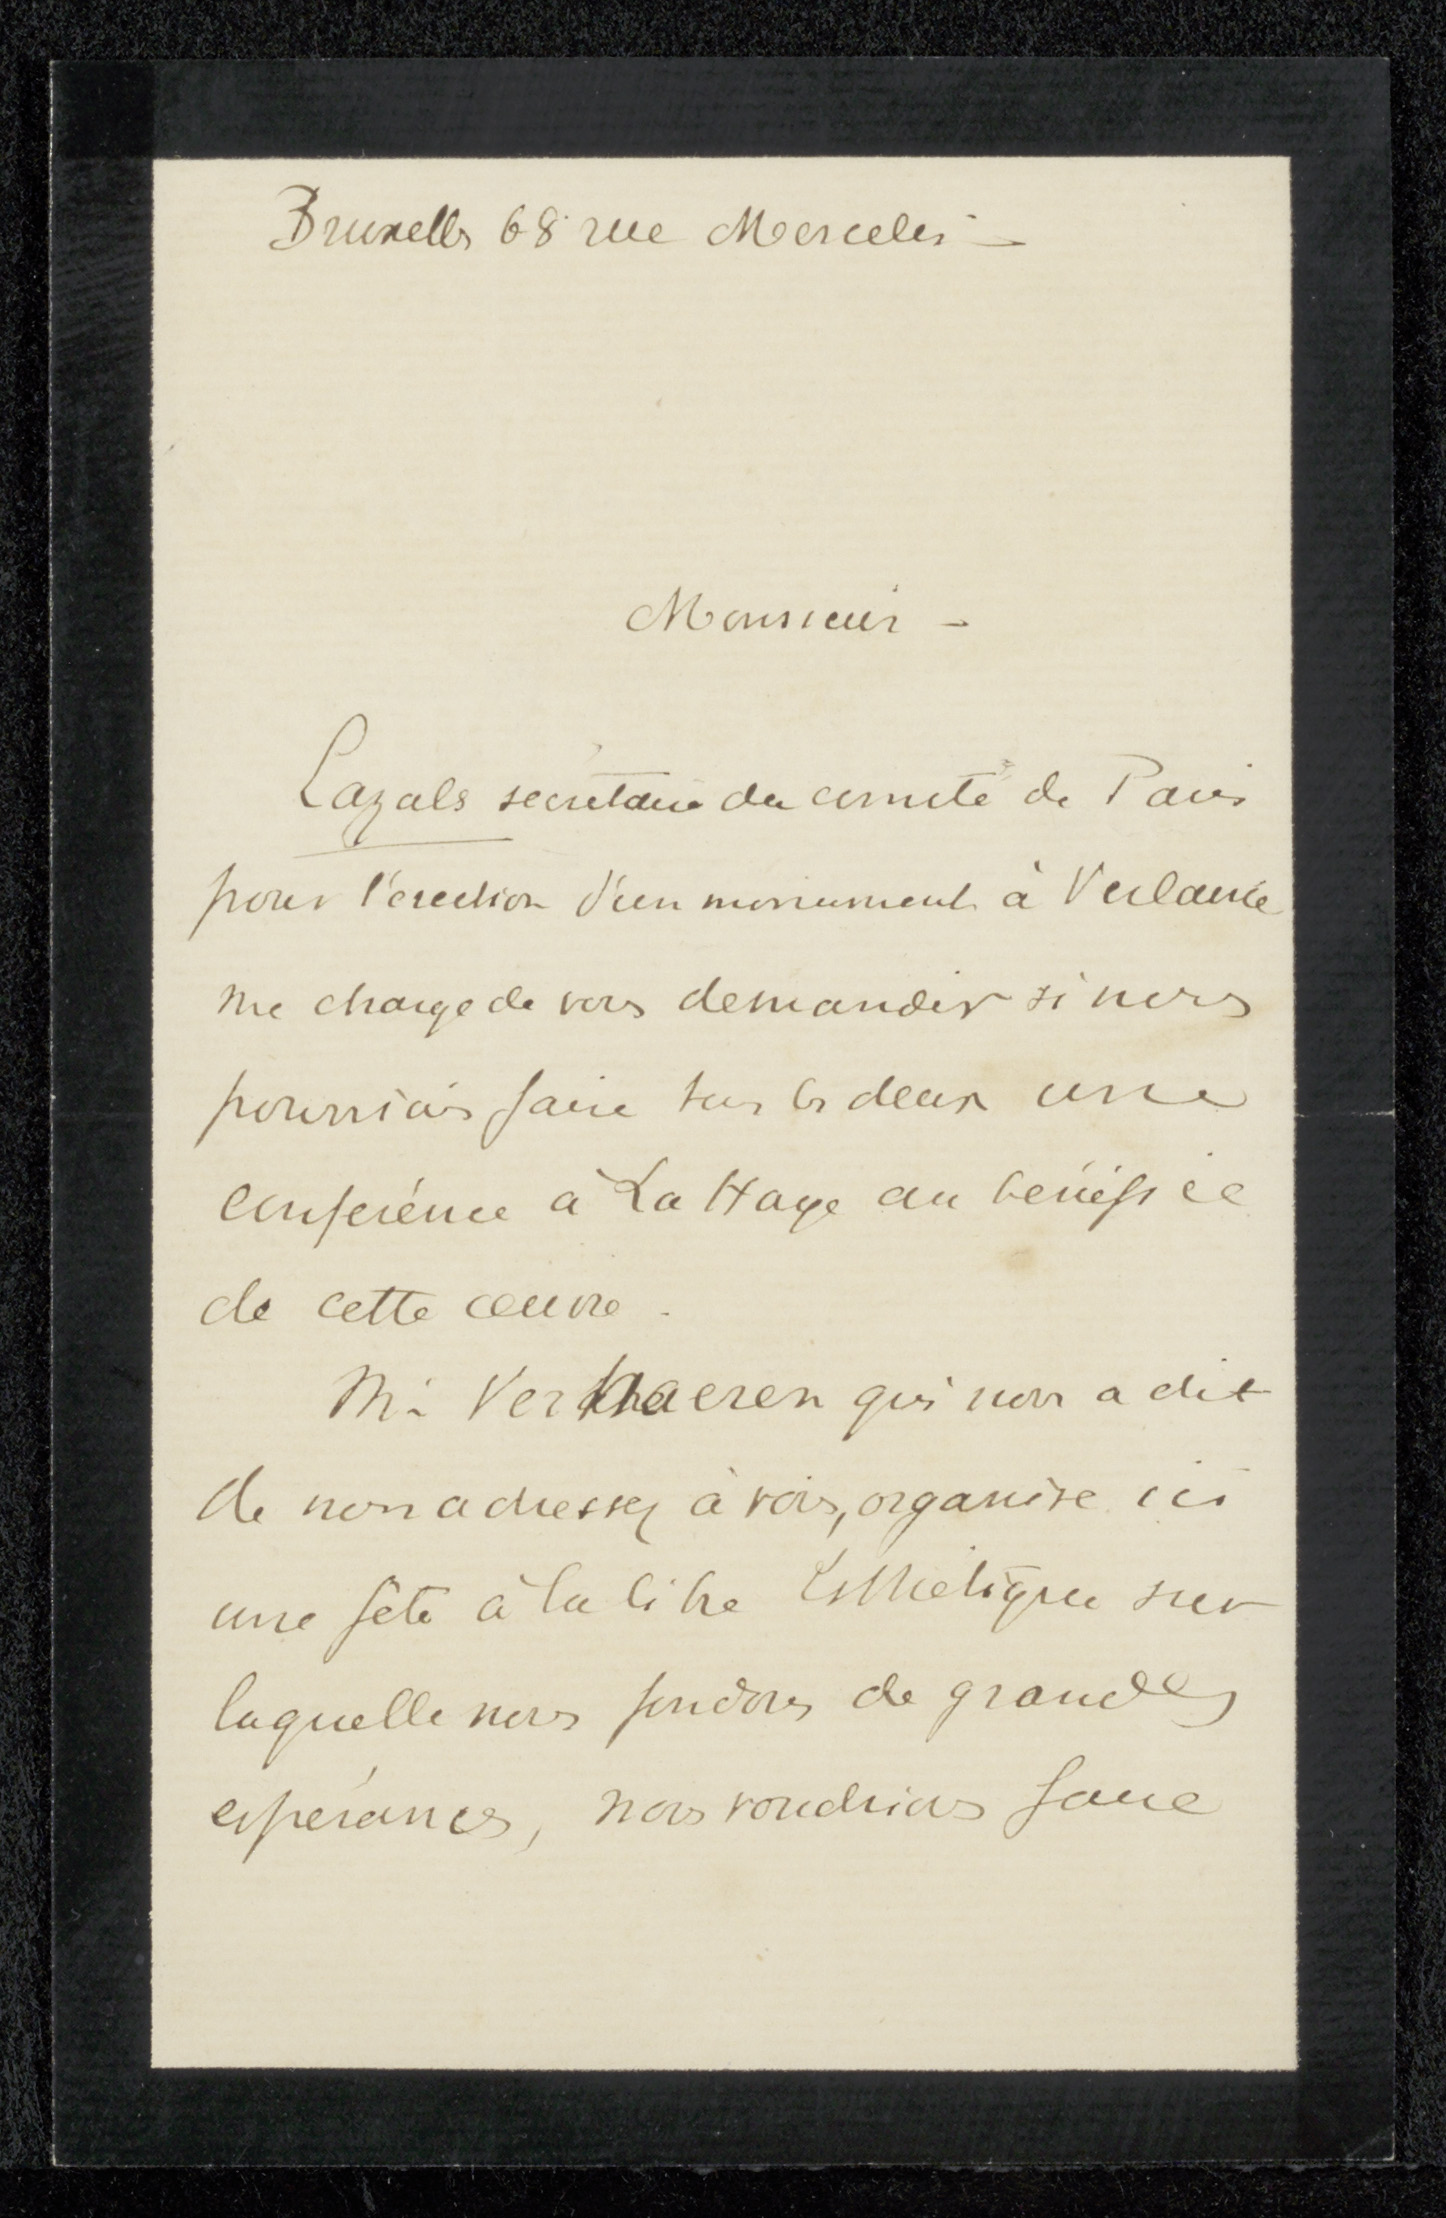 Bruxelles 68 rue Mercelis –
Monsieur –
Cazals secrétaire du comité de Paris
pour l'érection d'un monument à Verlaine
me charge de vous demander si nous
pourrions faire tous les deux une
conférence à La Haye au bénéfice
de cette œuvre.
Mr Verhaeren qui nous a dit
de nous adresser à vous, organise ici
une fête à la libre Esthétique sur
laquelle nous fondons de grandes
espérances, nous voudrions faire